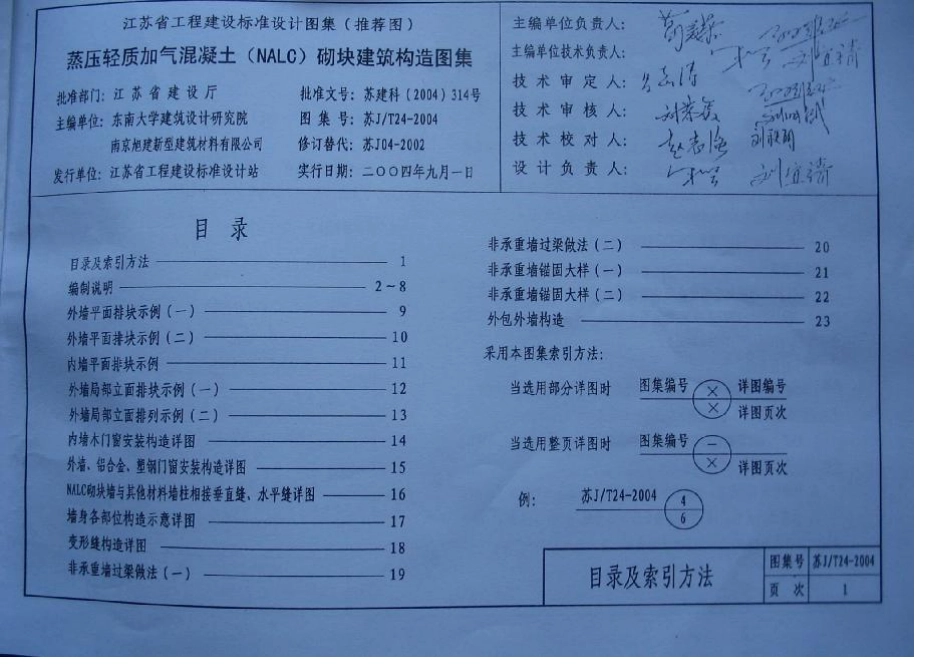 江苏省工程建设标准设计图集(推荐图)
蒸压轻质加气混凝土(NALC)砌块建筑构造图集
批准部门: 江苏省建设厅 批准文号: 苏建科(2004)314号
主编单位: 东南大学建筑设计研究院 图集号: 苏J/T24-2004
南京旭建新型建筑材料有限公司 修订替代: 苏J04-2002
发行单位: 江苏省工程建设标准设计站 实行日期: 二〇〇四年九月一日
主编单位负责人:
主编单位技术负责人:
技术审定人:
技术审核人:
技术校对人:
设计负责人:
目录
目录及索引方法 1
编制说明 2~8
外墙平面排块示例(一) 9
外墙平面排块示例(二) 10
内墙平面排块示例 11
外墙局部立面排块示例(一) 12
外墙局部立面排列示例(二) 13
内墙木门窗安装构造详图 14
外墙、铝合金、塑钢门窗安装构造详图 15
NALC砌块墙与其他材料墙柱相接垂直缝、水平缝详图 16
墙身各部位构造示意详图 17
变形缝构造详图 18
非承重墙过梁做法(一) 19
非承重墙过梁做法(二) 20
非承重墙锚固大样(一) 21
非承重墙锚固大样(二) 22
外包外墙构造 23
采用本图集索引方法:
当选用部分详图时 图集编号 × 详图编号
× 详图页次
当选用整页详图时 图集编号 —
× 详图页次
例: 苏J/T24-2004 4
6
目录及索引方法 图集号 苏J/T24-2004
页次 1